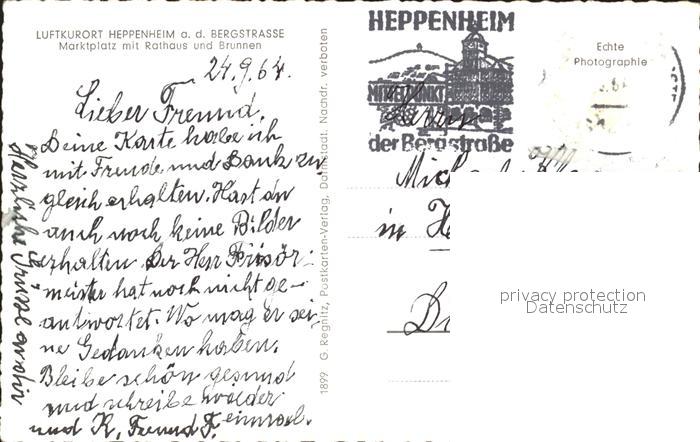 LUFTKURORT HEPPENHEIM a. d. BERGSTRASSE
Marktplatz mit Rathaus und Brunnen
24.9.64.
Lieber Freund,
Deine Karte habe ich
mit Freude und Dank zu
gleich erhalten. Hast du
auch noch keine Bilder
erhalten. Der Herr Frisör-
meister hat noch nicht ge-
antwortet. Wo mag er sei-
ne Gedanken haben.
Bleibe schön gesund
und schreibe wieder
einmal.
und K, Freund F.
Herzliche Grüsse
1899 G. Regnitz, Postkarten-Verlag, Darmstadt. Nachdr. verboten
HEPPENHEIM
MITTELPUNKT
der Bergstraße
Echte
Photographie
Herrn
in
privacy protection
Datenschutz